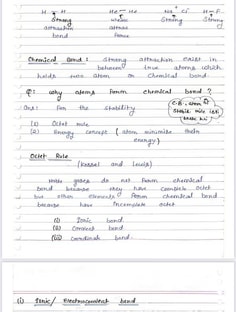 H — H He — He Na⁺ Cl⁻ H — F
Strong weak Strong Strong
attraction attrac
bond force
Chemical Bond: Strong attraction exist in
between two atoms which
holds atom or chemical bond
Q: why atoms form chemical bond ?
Ans: For the stability
(1) Octet rule
(2) Energy concept ( atom minimise their
energy)
C.B. atom
stable
Octet Rule
(Kossel and Lewis)
Noble gases do not form chemical
bond because they have complete octet
but other elements form chemical bond
because have incomplete octet
(i) Ionic bond
(ii) Covalent bond
(iii) coordinate bond.
(i) Ionic/ Electrovalent bond